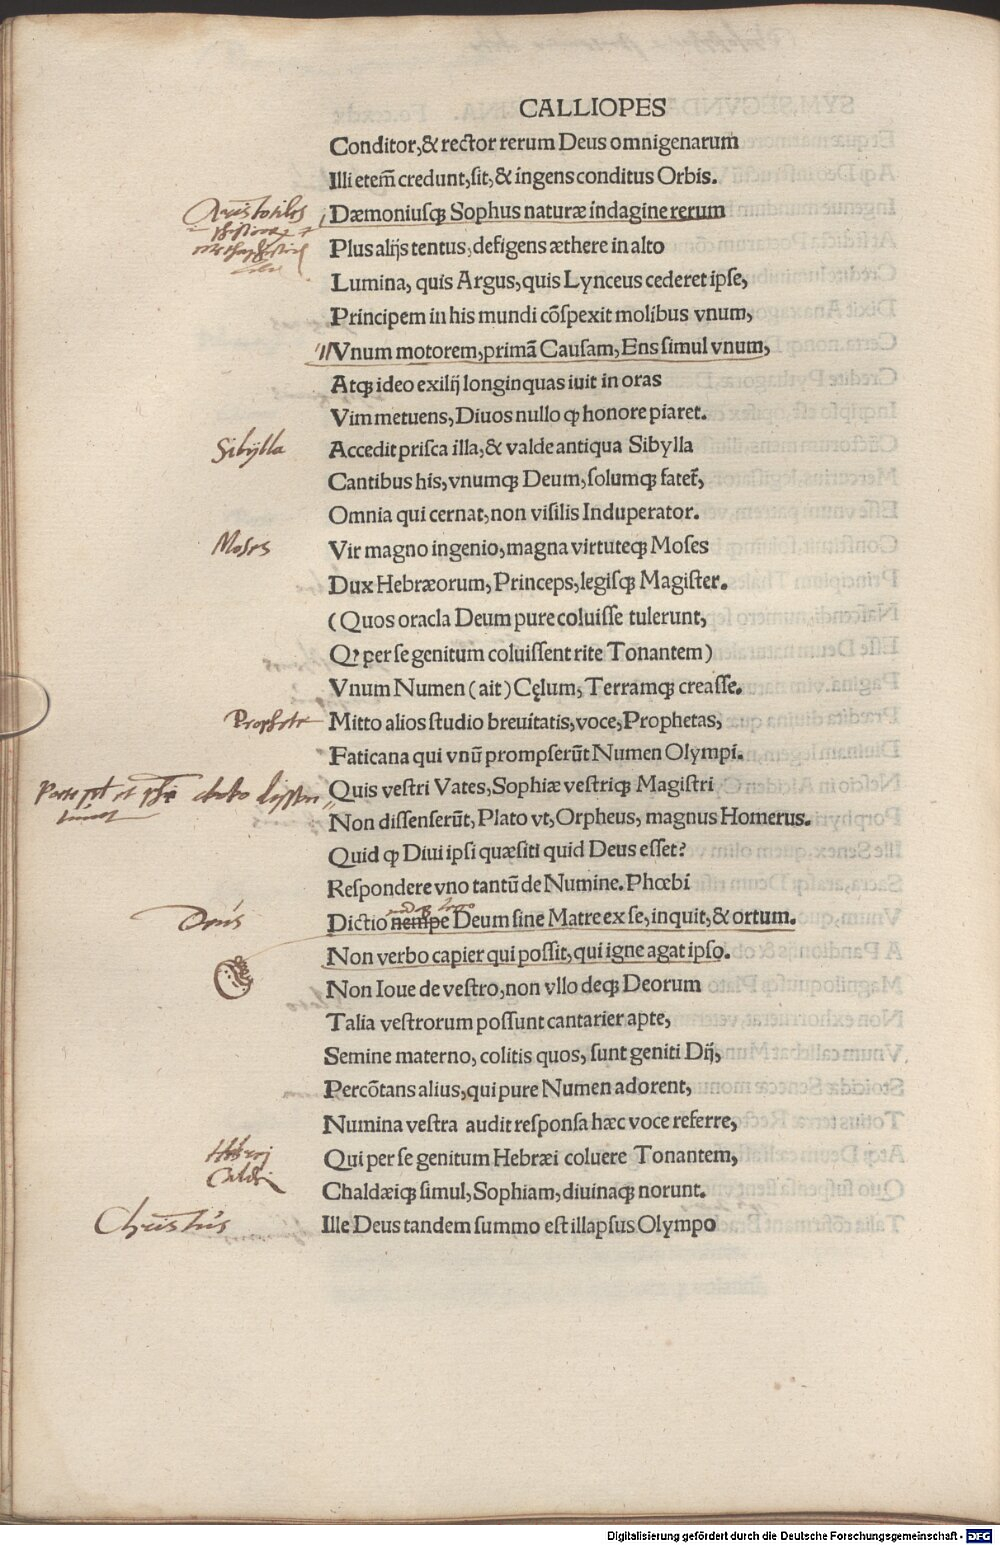 CALLIOPES
Conditor,& rector rerum Deus omnigenarum
Illi etem̃ credunt,sit,& ingens conditus Orbis.
Aristoteles
Dæmoniusqꝫ Sophus naturæ indagine rerum
Plus alijs tentus,defigens æthere in alto
Lumina, quis Argus,quis Lynceus cederet ipse,
Principem in his mundi cõspexit molibus vnum,
Vnum motorem,primã Causam,Ens simul vnum,
Atqꝫ ideo exilij longinquas iuit in oras
Vim metuens,Diuos nullo ꝙ honore piaret.
Sibylla
Accedit prisca illa,& valde antiqua Sibylla
Cantibus his,vnumqꝫ Deum,solumqꝫ fater̃,
Omnia qui cernat,non visilis Induperator.
Moses
Vir magno ingenio,magna virtuteqꝫ Moses
Dux Hebræorum,Princeps,legisqꝫ Magister.
(Quos oracla Deum pure coluisse tulerunt,
Qꝫ ꝑer se genitum coluissent rite Tonantem)
Vnum Numen (ait) Cęlum, Terramqꝫ creasse.
Prophete
Mitto alios studio breuitatis,voce,Prophetas,
Faticana qui vnũ prompserũt Numen Olympi.
Quis vestri Vates,Sophiæ vestriqꝫ Magistri
Non dissenserũt, Plato vt,Orpheus, magnus Homerus.
Quid ꝙ Diui ipsi quæsiti quid Deus esset?
Respondere vno tantũ de Numine.Phœbi
Deus
Dictio nempe Deum sine Matre ex se,inquit,& ortum.
Non verbo capier qui possit,qui igne agat ipso.
Non Ioue de vestro,non vllo deqꝫ Deorum
Talia vestrorum possunt cantarier apte,
Semine materno, colitis quos, sunt geniti Dij,
Percõtans alius,qui pure Numen adorent,
Numina vestra audit responsa hæc voce referre,
Hebrei
Caldei
Qui per se genitum Hebræi coluere Tonantem,
Chaldæiqꝫ simul,Sophiam,diuinaqꝫ norunt.
Christus
Ille Deus tandem summo est illapsus Olympo
Digitalisierung gefördert durch die Deutsche Forschungsgemeinschaft - DFG